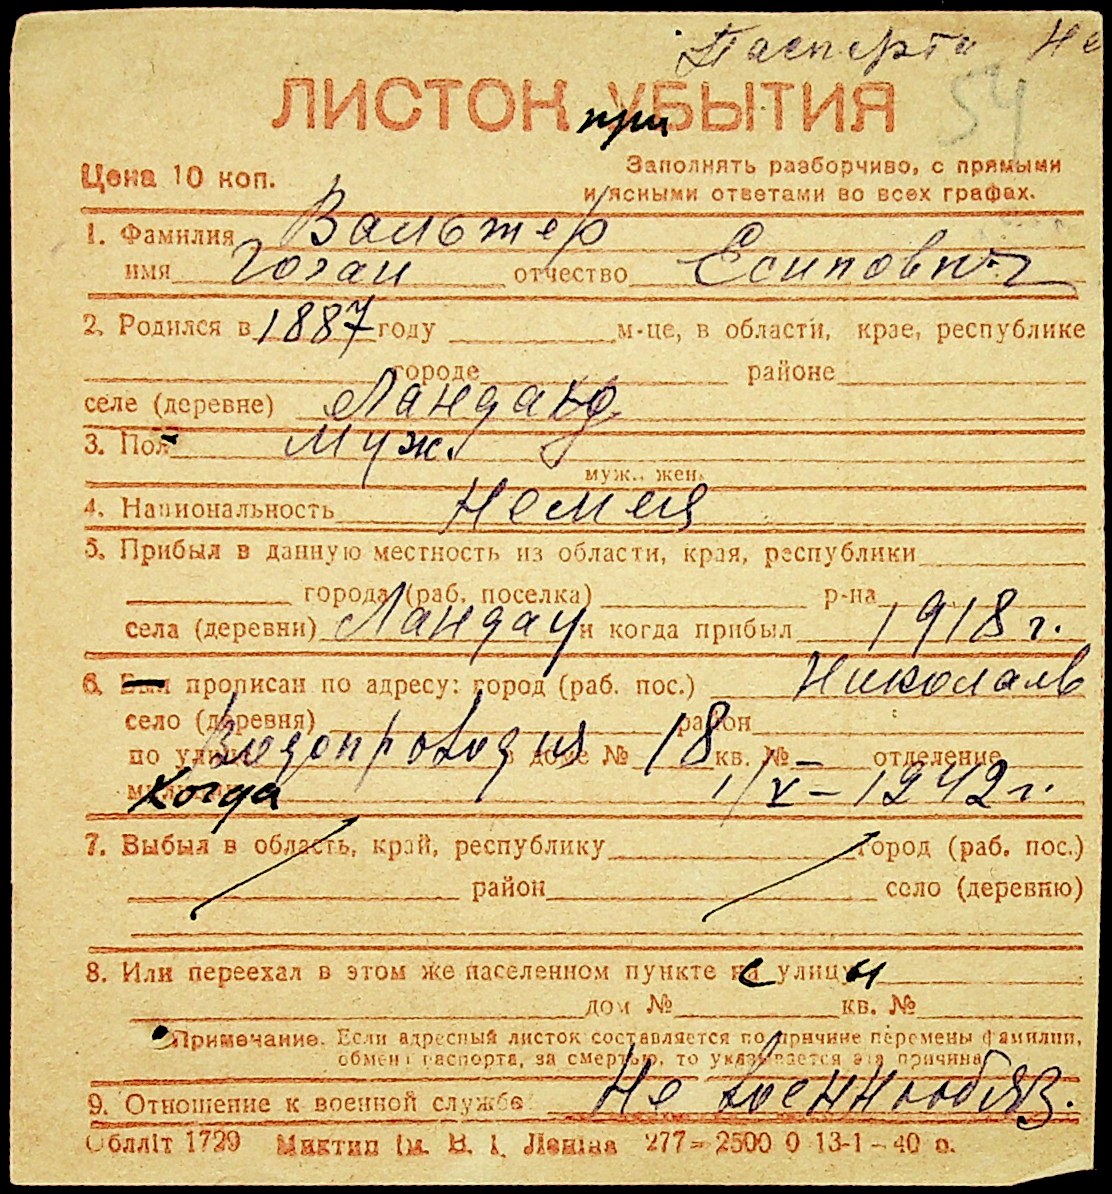 Паспорта не
ЛИСТОК при УБЫТИЯ 54
Цена 10 коп. Заполнять разборчиво, с прямыми
и ясными ответами во всех графах.
1. Фамилия Вальтер
имя Иоган отчество Есипович
2. Родился в 1887 году м-це, в области, крае, республике
городе районе
селе (деревне) Ландау
3. Пол муж.
муж., жен.
4. Национальность немец
5. Прибыл в данную местность из области, края, республики
города (раб. поселка) р-на
села (деревни) Ландау и когда прибыл 1918 г.
6. Был прописан по адресу: город (раб. пос.) Николаев
село (деревня) район
по улице Водопроводная в доме № 18 кв. № отделение
милиции Когда 1/V – 1942 г.
7. Выбыл в область, край, республику город (раб. пос.)
район село (деревню)
8. Или переехал в этом же населенном пункте на улицу
с н
дом № кв. №
Примечание. Если адресный листок составляется по причине перемены фамилии,
обмена паспорта, за смертью, то указывается эта причина
9. Отношение к военной службе Не военнообяз.
Облліт 1729 Миктип ім. В. І. Леніна 277 – 2500 0 13-1 – 40 р.